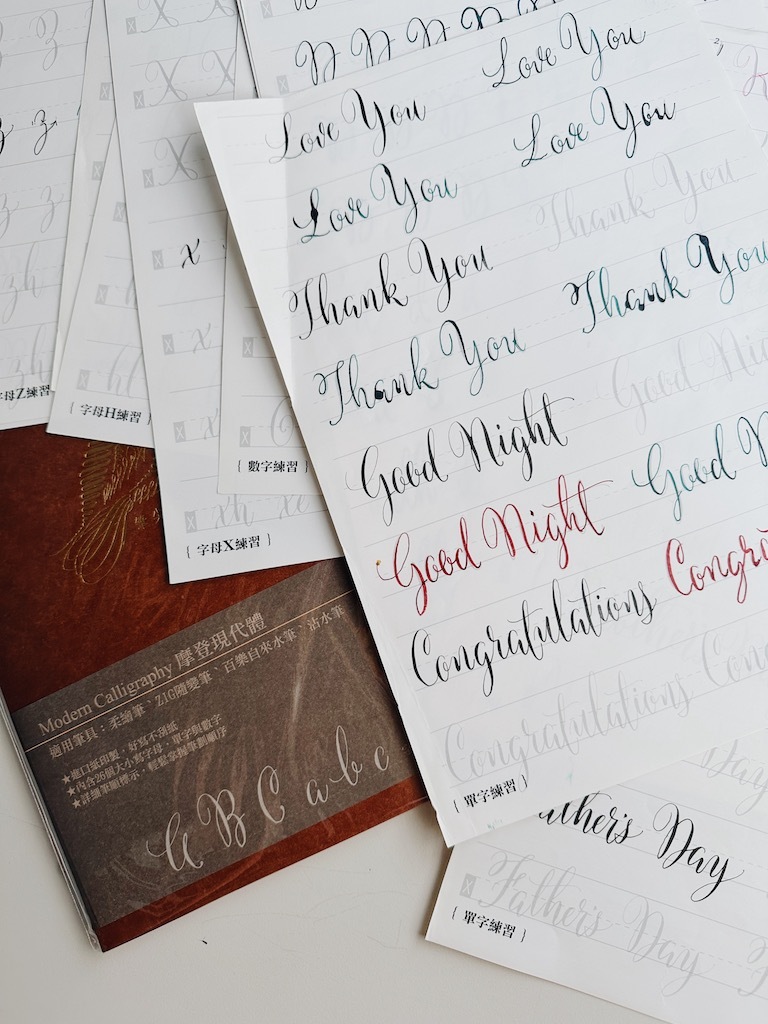 Love You Love You
Love You Love You
Thank You Thank You
Thank You Thank You
Good Night Good Nig
Good Night Good N
Congratulations Congra
Congratulations Con
{ 單字練習 }
ather's Day Day
Father's Day
{ 單字練習 }
z z
z z
zh
zh
字母Z練習 }
hl
{ 字母H練習 }
X X
X
x
x
x
xh xe
{ 字母X練習 }
{ 數字練習 }
Modern Calligraphy 摩登現代體
適用筆具：柔繪筆、ZIG隨變筆、百樂自來水筆、沾水筆
★進口紙印製，好寫不刮紙
★內含26個大小寫字母、單字與數字
★詳細筆順標示，輕鬆掌握筆劃順序
A B C a b c